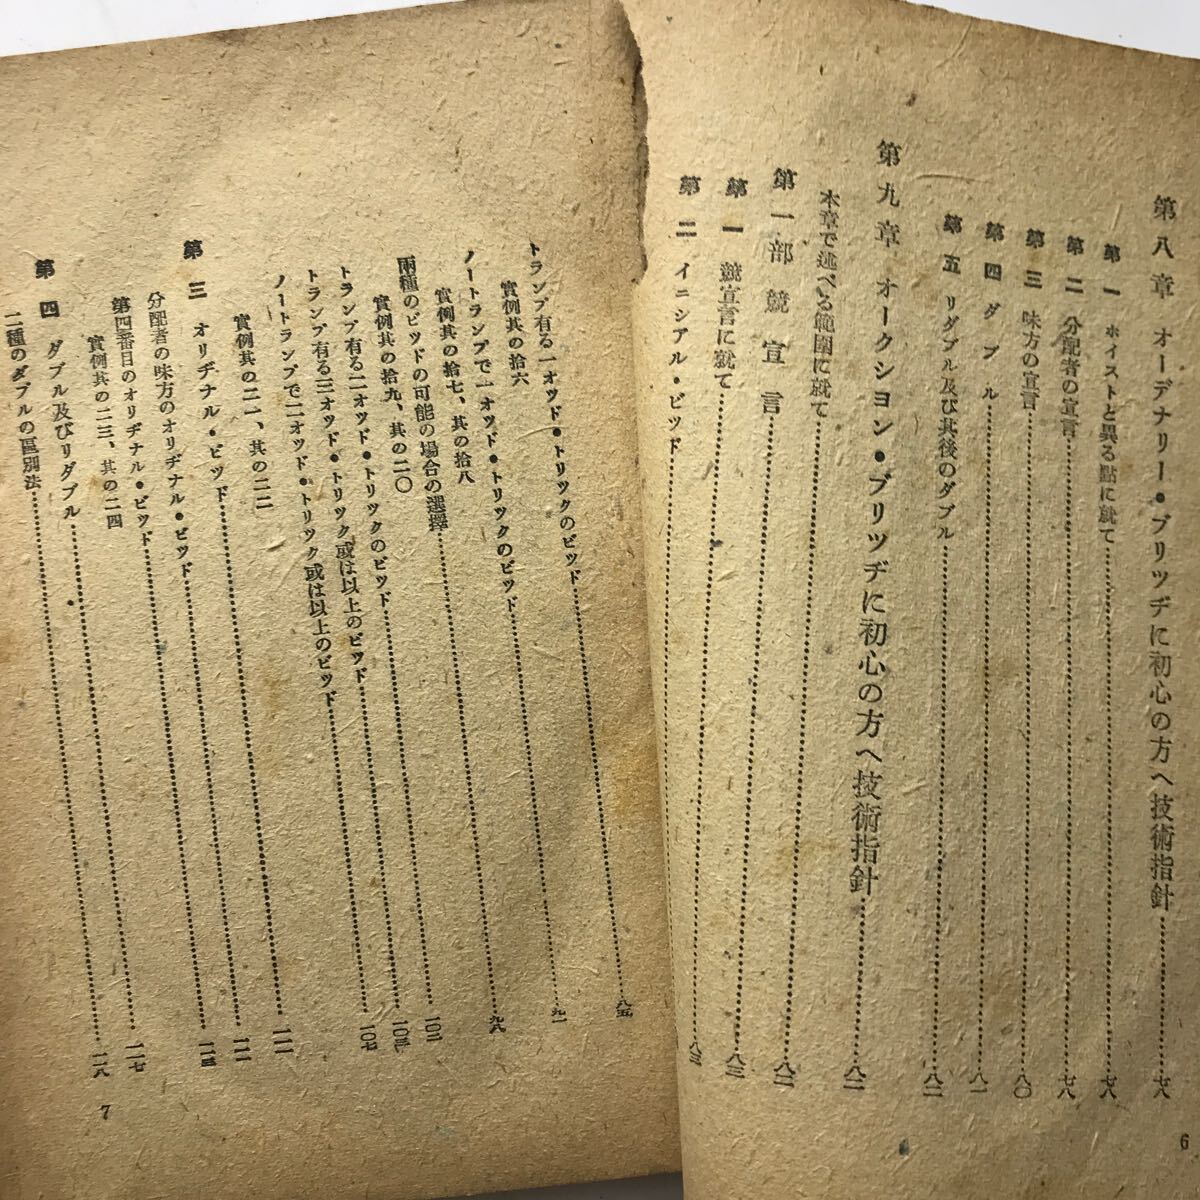 第八章 オーデナリー・ブリッヂに初心の方へ技術指針……七八
第一 ホイストと異る點に就て……七八
第二 分配者の宣言……七八
第三 味方の宣言……八〇
第四 ダブル……八一
第五 リダブル及び其後のダブル……八二
第九章 オークション・ブリッヂに初心の方へ技術指針……八二
本章で述べる範圍に就て……八二
第一部 競宣言
第一 競宣言に就て……八三
第二 イニシアル・ビッド……八三
6
トランプ有る一オッド・トリックのビッド……八五
實例其の拾六
ノートランプで一オッド・トリックのビッド……九一
實例其の拾七、其の拾八
兩種のビッドの可能の場合の選擇……九八
實例其の拾九、其の二〇
トランプ有る二オッド・トリックのビッド……一〇二
トランプ有る三オッド・トリック或は以上のビッド……一〇七
ノートランプで二オッド・トリック或は以上のビッド
實例其の二一、其の二二
第三 オリヂナル・ビッド
分配者の味方のオリヂナル・ビッド
第四番目のオリヂナル・ビッド……一一七
實例其の二三、其の二四
第四 ダブル及びリダブル……一一八
二種のダブルの區別法
7